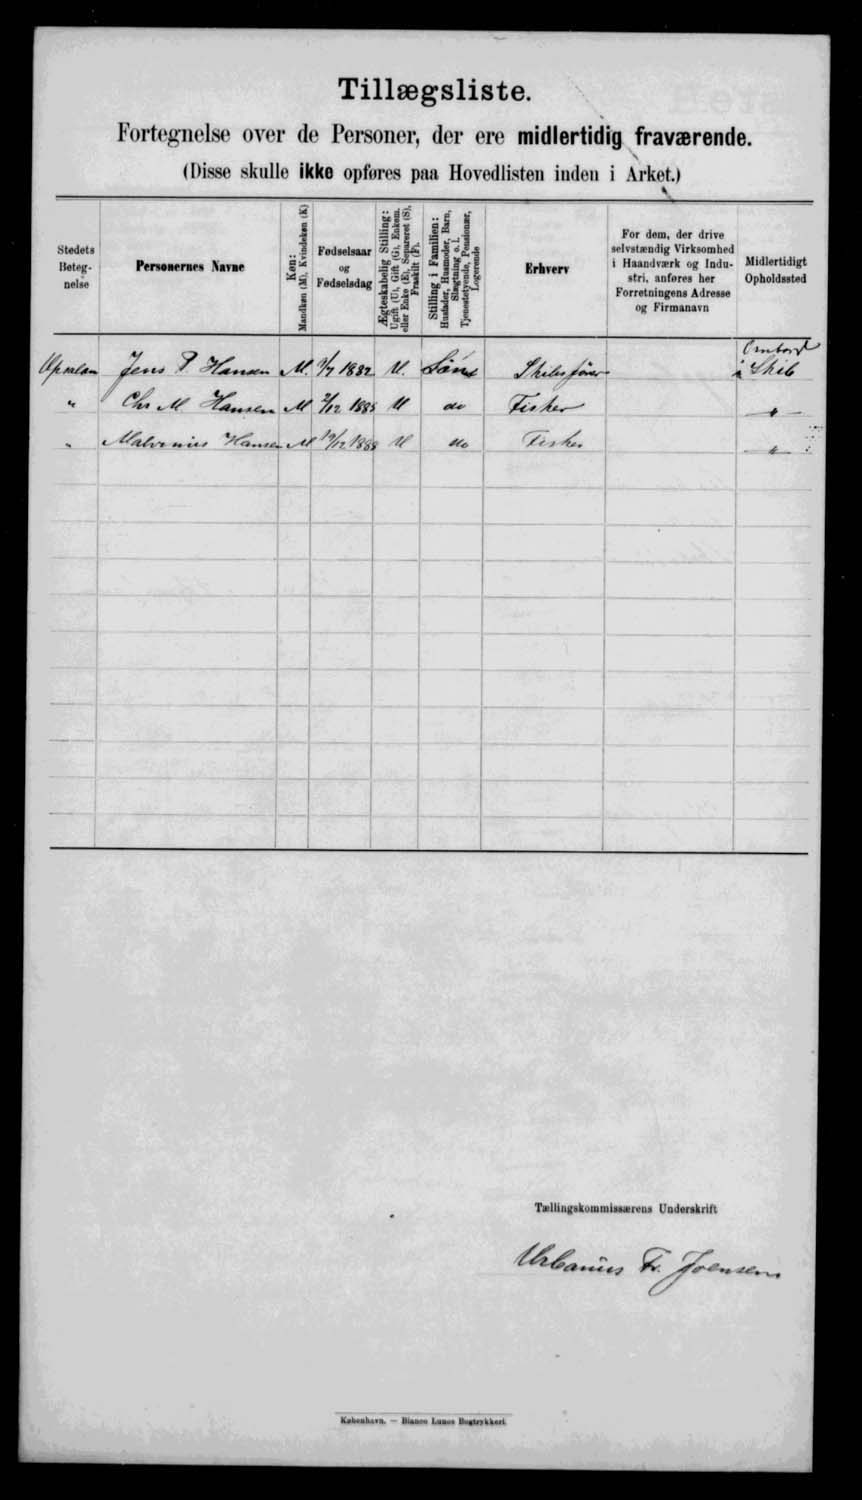 Tillægsliste.
Fortegnelse over de Personer, der ere midlertidig fraværende.
(Disse skulle ikke opføres paa Hovedlisten inden i Arket.)
Stedets Betegnelse
Personernes Navne
Køn: Mandkøn (M), Kvindekøn (K)
Fødselsaar og Fødselsdag
Ægteskabelig Stilling: Ugift (U), Gift (G), Enkem. eller Enke (E), Separeret (S), Fraskilt (F).
Stilling i Familien: Husfader, Husmoder, Barn, Slægtning o.l. Tjenestetyende, Pensionær, Logerende
Erhverv
For dem, der drive selvstændig Virksomhed i Haandværk og Industri, anføres her Forretningens Adresse og Firmanavn
Midlertidigt Opholdssted
Jens P. Hansen M. /7 1882 U. Søn Skibsfører Ombord i Skib
" Chr M Hansen M /12 1885 U do Fisker "
" Malvinus Hansen M 19/12 1888 U do Fisker "
Tællingskommissærens Underskrift
Urbanus Fr. Joensen
København. — Bianco Lunos Bogtrykkeri